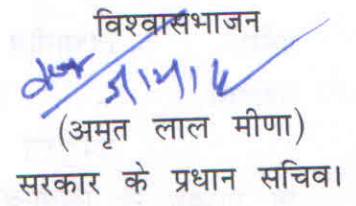 विश्वासभाजन
(अमृत लाल मीणा)
सरकार के प्रधान सचिव।